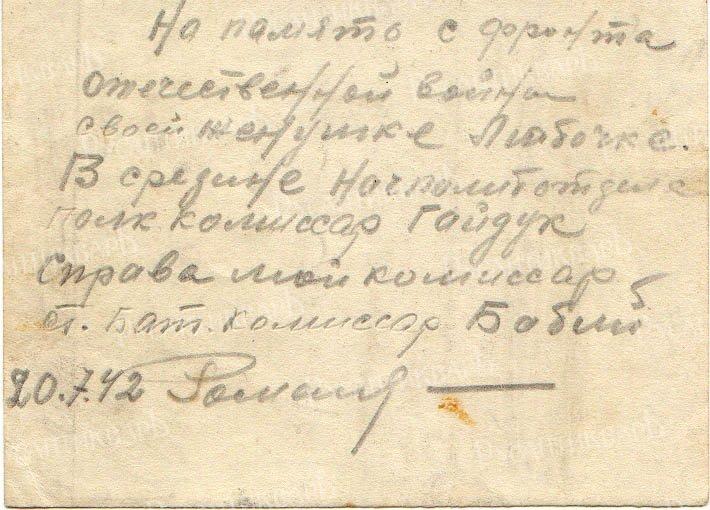 На память с фронта
отечественной войны
своей женушке Любочке.
В средине Начполитотдела
Полк комиссар Гайдук
Справа мой комиссар
ст. Бат. комиссар
20.7.42 Роман